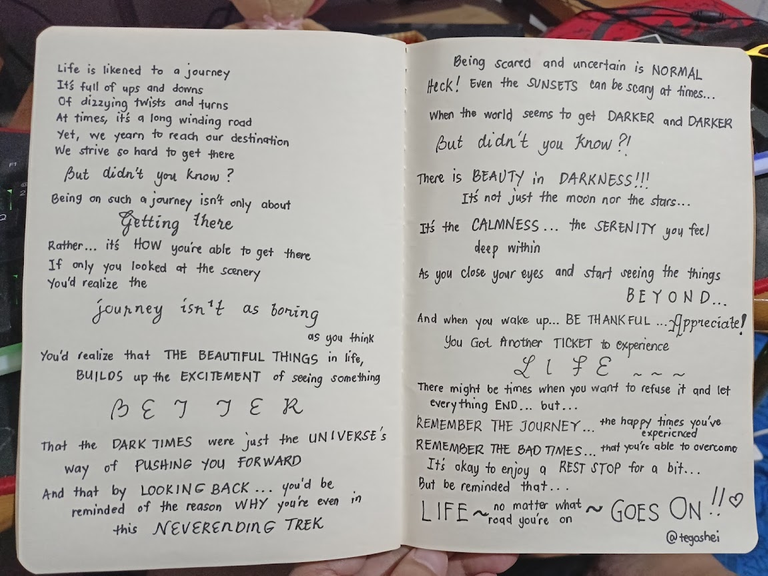 Life is likened to a journey
It's full of ups and downs
Of dizzying twists and turns
At times, it's a long winding road
Yet, we yearn to reach our destination
We strive so hard to get there
But didn't you know?
Being on such a journey isn't only about
Getting there
Rather... it's HOW you're able to get there
If only you looked at the scenery
You'd realize the
journey isn't as boring
as you think
You'd realize that THE BEAUTIFUL THINGS in life,
BUILDS up the EXCITEMENT of seeing something
BETTER
That the DARK TIMES were just the UNIVERSE's
way of PUSHING YOU FORWARD
And that by LOOKING BACK... you'd be
reminded of the reason WHY you're even in
this NEVERENDING TREK
Being scared and uncertain is NORMAL
Heck! Even the SUNSETS can be scary at times...
When the world seems to get DARKER and DARKER
But didn't you know?!
There is BEAUTY in DARKNESS!!!
It's not just the moon nor the stars...
It's the CALMNESS... the SERENITY you feel
deep within
As you close your eyes and start seeing the things
BEYOND...
And when you wake up... BE THANKFUL... Appreciate!
You Got Another TICKET to experience
LIFE ~~~
There might be times when you want to refuse it and let
everything END... but...
REMEMBER THE JOURNEY... the happy times you've
experienced
REMEMBER THE BAD TIMES... that you're able to overcome
It's okay to enjoy a REST STOP for a bit...
But be reminded that...
LIFE ~ no matter what road you're on ~ GOES ON!! ♡
@tegoshei